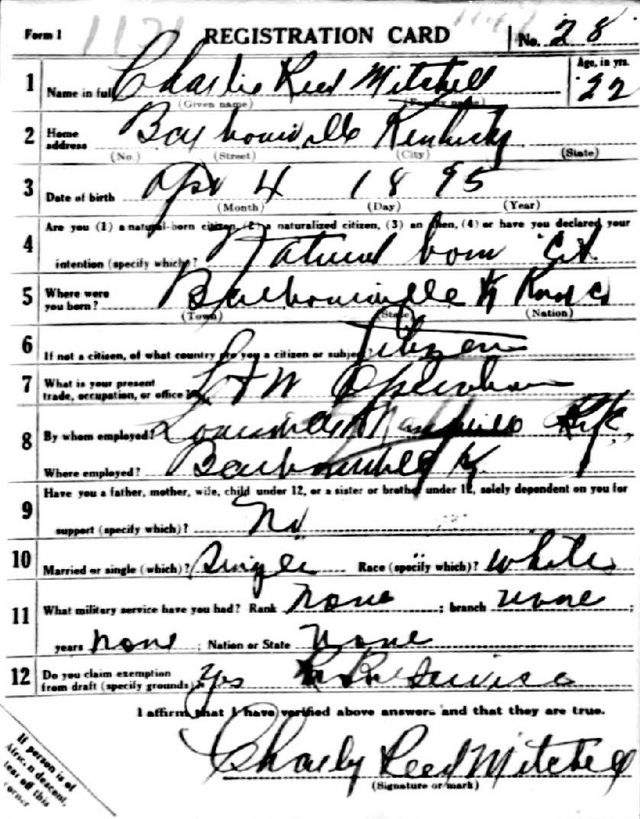 Form 1 1171 REGISTRATION CARD No. 28
1 Name in full Charlie Reed Mitchell Age, in yrs. 22
(Given name) (Family name)
2 Home address Barbourville Kentucky
(No.) (Street) (City) (State)
3 Date of birth Apr 4 1895
(Month) (Day) (Year)
Are you (1) a natural-born citizen, (2) a naturalized citizen, (3) an alien, (4) or have you declared your
4 intention (specify which)? Natural born Cit
5 Where were you born? Barbourville Ky Knox
(Town) (State) (Nation)
6 If not a citizen, of what country are you a citizen or subject? Citizen
7 What is your present trade, occupation, or office?
8 By whom employed? Louisville Nashville
Where employed? Barbourville Ky
Have you a father, mother, wife, child under 12, or a sister or brother under 12, solely dependent on you for
9 support (specify which)? No
10 Married or single (which)? Single Race (specify which)? White
11 What military service have you had? Rank none ; branch none ;
years none ; Nation or State None
12 Do you claim exemption from draft (specify grounds)? Yes R R Service
I affirm that I have verified above answers and that they are true.
Charly Reed Mitchell
(Signature or mark)
If person is of
African descent,
tear off this
corner